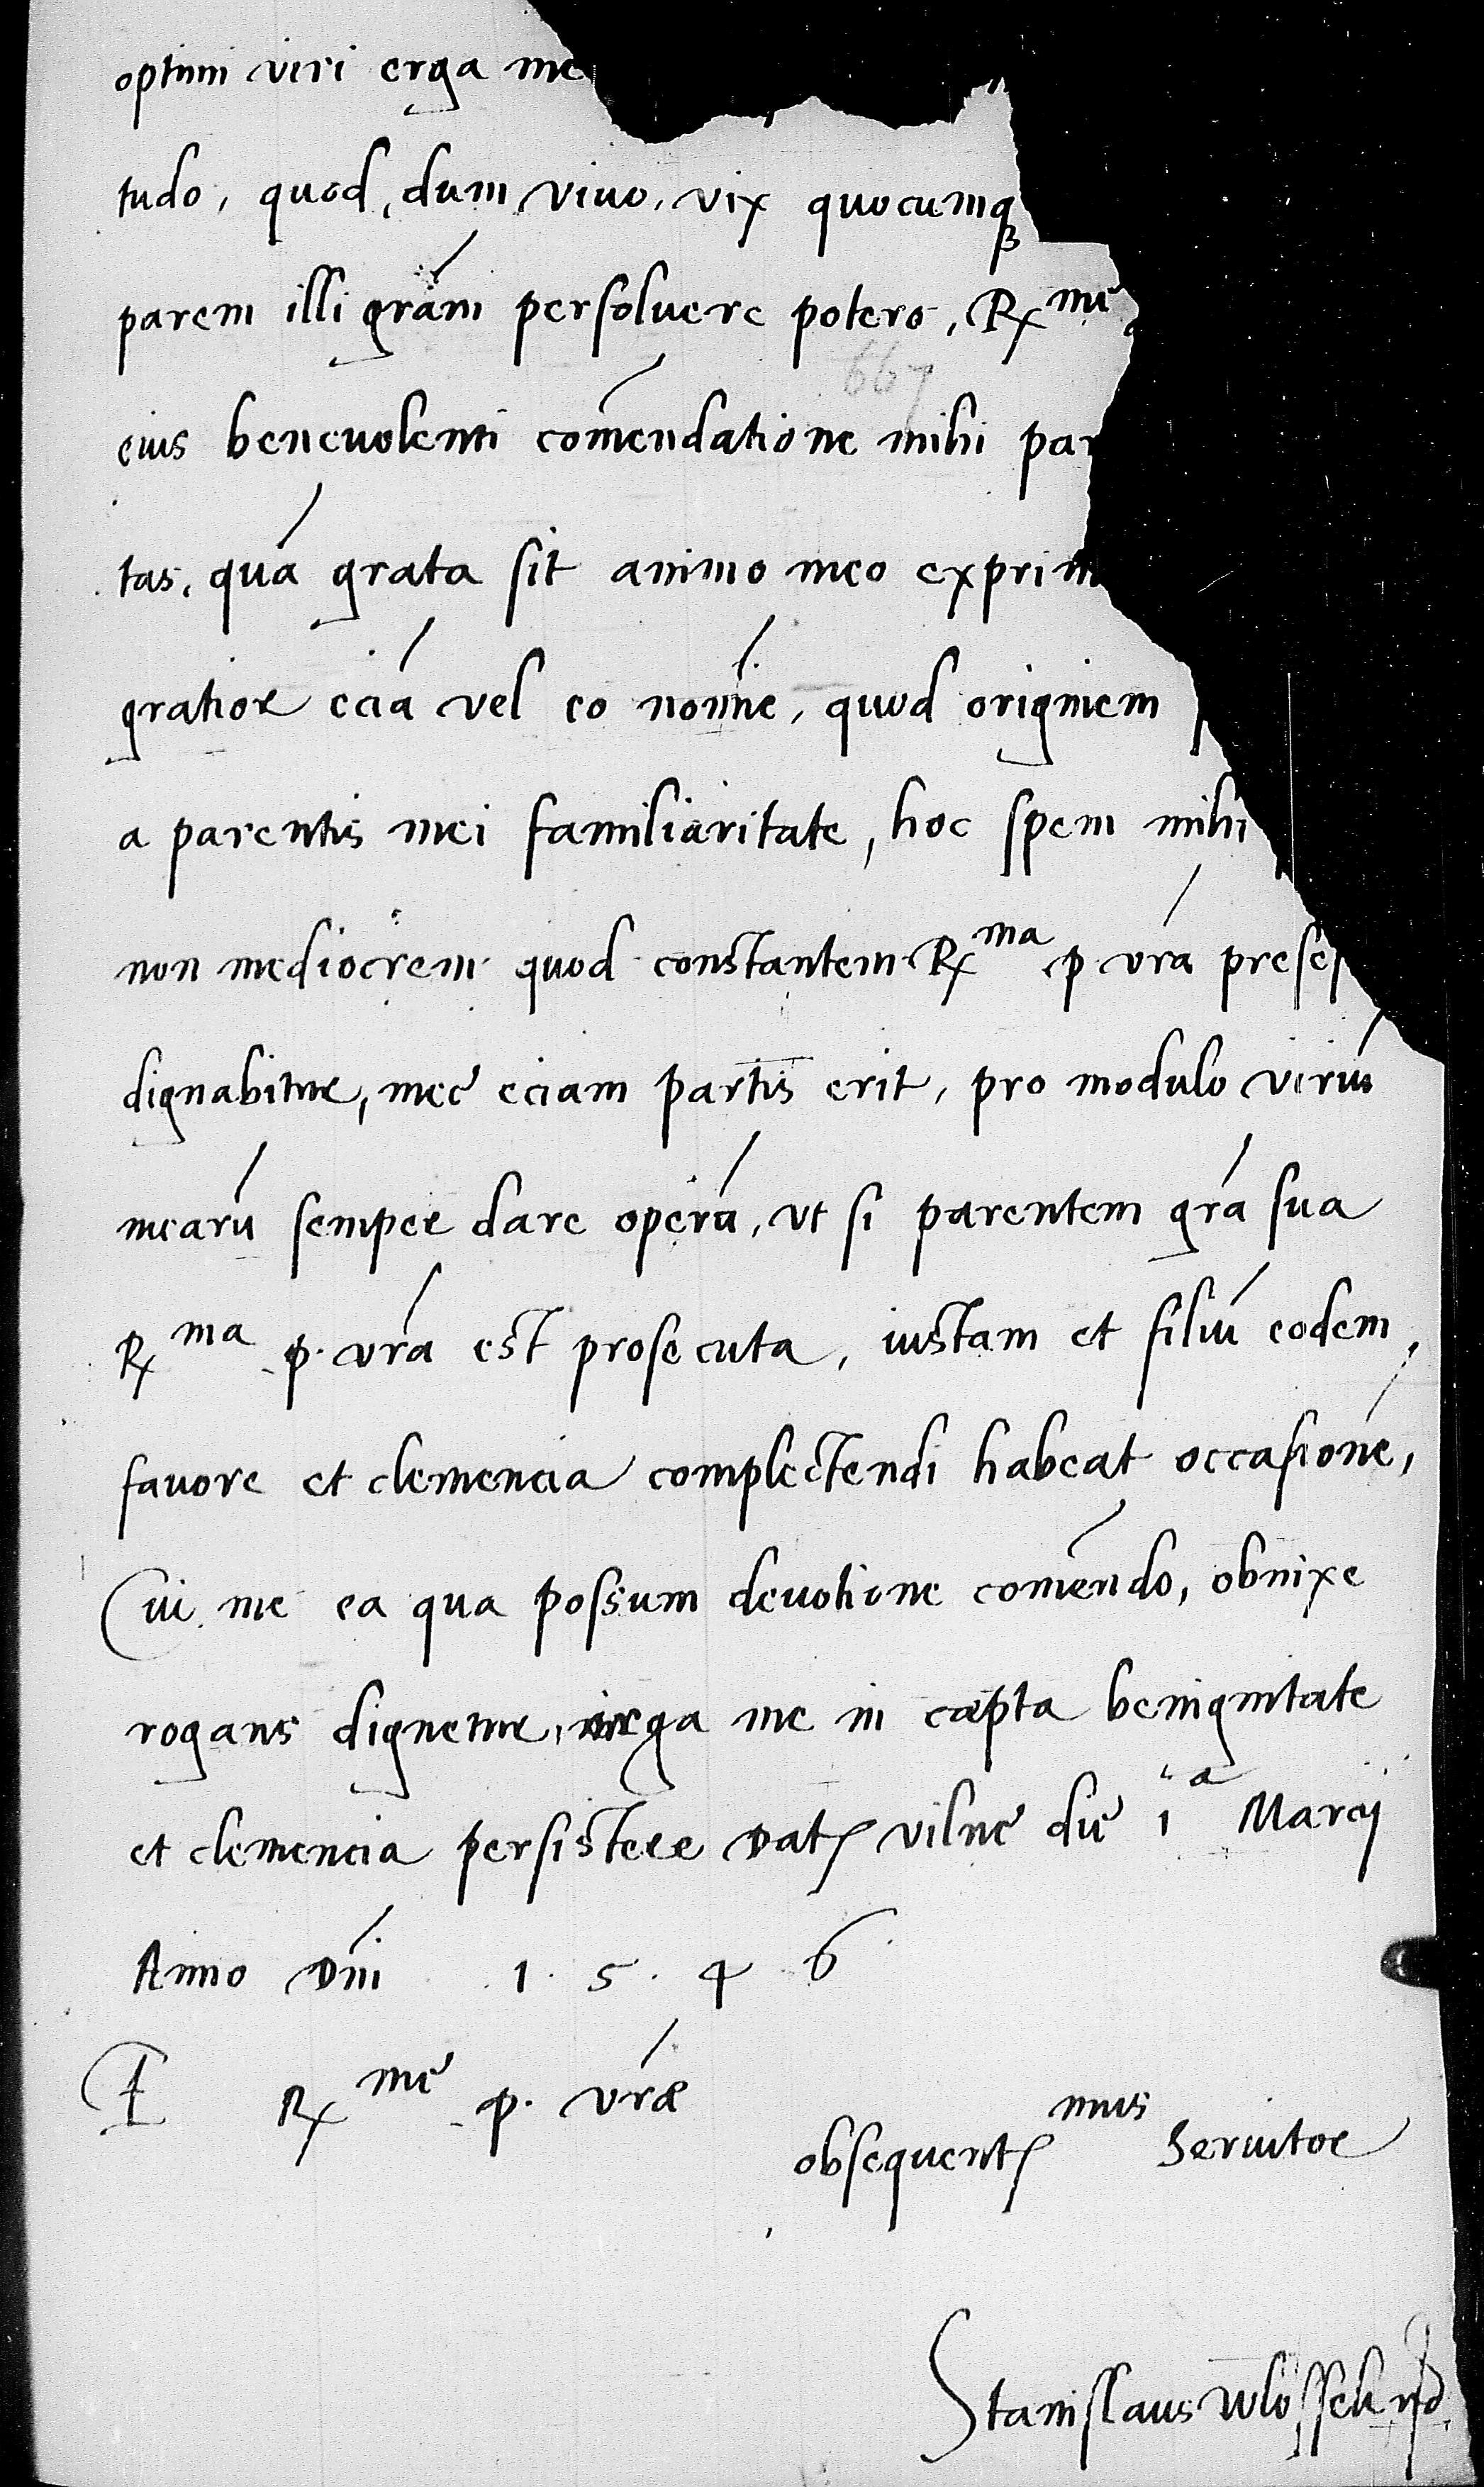 optimi viri erga me
tudo, quod, dum viuo, vix quocumqꝫ
parem illi grãm persoluere potero, Rꝫ me
667
eius beneuolenti cõmendatione mihi par
tas, quã grata sit animo meo exprim
gratior eciã vel eo nomĩe, quod originem
a parentis mei familiaritate, hoc spem mihi
non mediocrem quod constantem Rꝫ ma p. vrã prese
dignabitur, meę eciam partis erit, pro modulo viriũ
mearũ semper dare operã, vt si parentem grã sua
Rꝫ ma p. vrã est prosecuta, iustam et filiũ eodem
fauore et clemencia complectendi habeat occasionẽ,
Cui me ea qua possum deuotione comẽndo, obnixe
rogans dignetur, erga me in cæpta benignitate
et clemencia persistere Datꝭ vilnę die 1 a Marcij
Anno Dñi 1. 5. 4 6
Rꝫ mę p. vræ
obsequentꝭ mus seruitor
Stanislaus